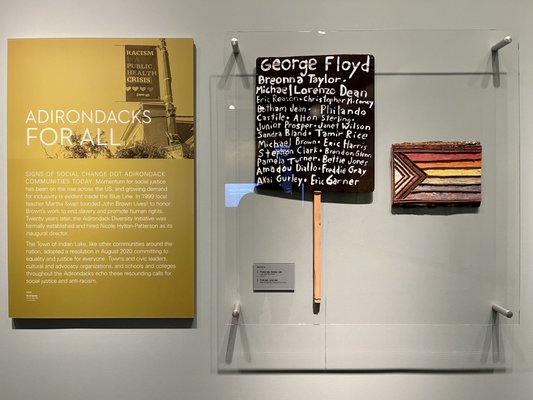 RACISM
IS A
PUBLIC
HEALTH
CRISIS
ADIRONDACKS
FOR ALL
SIGNS OF SOCIAL CHANGE DOT ADIRONDACK
COMMUNITIES TODAY. Momentum for social justice
has been on the rise across the US, and growing demand
for inclusivity is evident inside the Blue Line. In 1999 local
teacher Martha Swan founded John Brown Lives! to honor
Brown's work to end slavery and promote human rights.
Twenty years later, the Adirondack Diversity Initiative was
formally established and hired Nicole Hylton-Patterson as its
inaugural director.
The Town of Indian Lake, like other communities around the
nation, adopted a resolution in August 2020 committing to
equality and justice for everyone. Towns and civic leaders,
cultural and advocacy organizations, and schools and colleges
throughout the Adirondacks echo these resounding calls for
social justice and anti-racism.
George Floyd
Breonna Taylor •
Michael Lorenzo Dean
Eric Reason • Christopher McCorvey
Botham Jean • Philando
Castile • Alton Sterling
Junior Prosper • Janet Wilson
Sandra Bland • Tamir Rice
Michael Brown • Eric Harris
Stephon Clark • Brendon Glenn
Pamela Turner • Bettie Jones
Amadou Diallo • Freddie Gray
Akai Gurley • Eric Garner